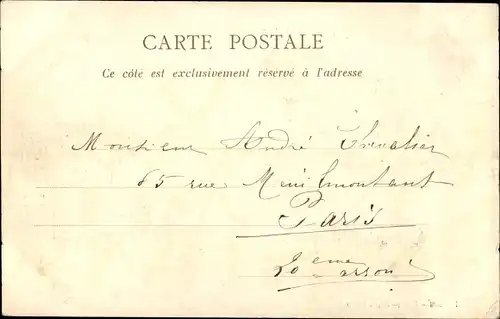 CARTE POSTALE
Ce côté est exclusivement réservé à l'adresse
Monsieur André Chevalier
65 rue Menilmontant
Paris
20 eme arron